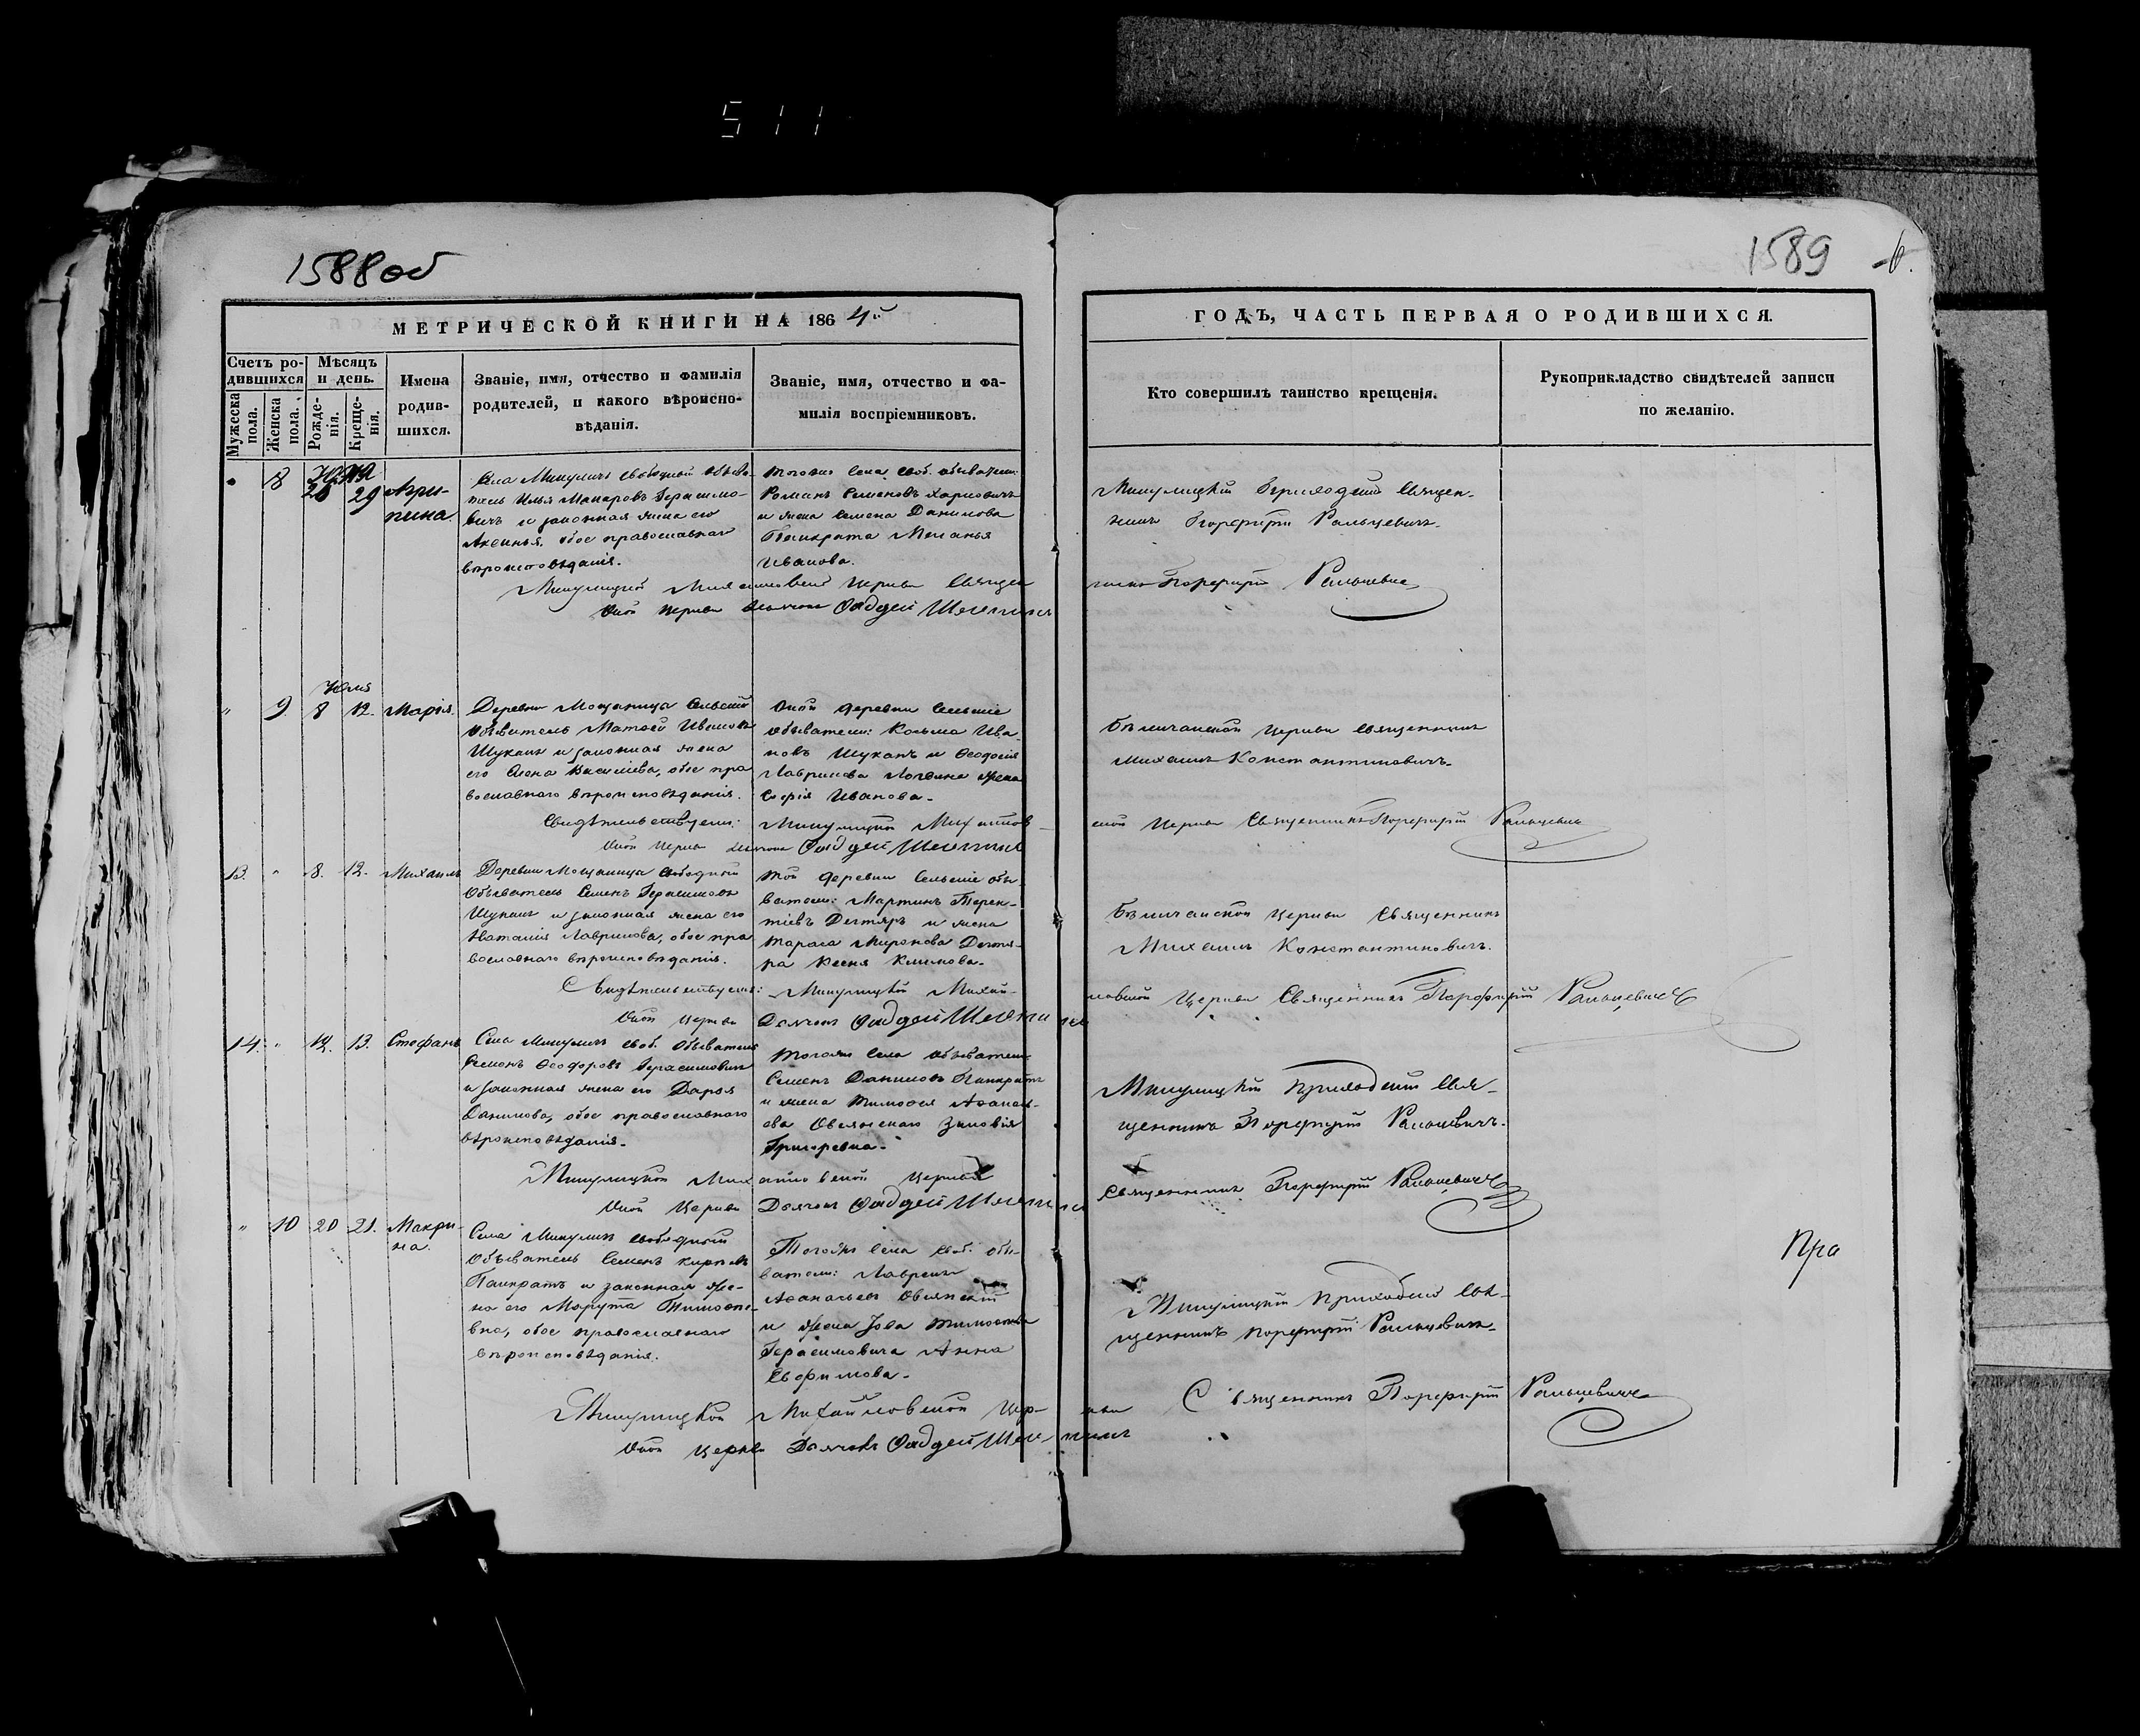 511
1588 об
1589
МЕТРИЧЕСКОЙ КНИГИ НА 1864й
ГОДЪ, ЧАСТЬ ПЕРВАЯ О РОДИВШИХСЯ.
Счетъ родившихся
Мужеска пола.
Женска пола.
Мѣсяцъ и день.
Рожденія.
Крещенія.
Имена родившихся.
Званіе, имя, отчество и фамилія
родителей, и какого вѣроиспо-
вѣданія.
Званіе, имя, отчество и фа-
милія воспріемниковъ.
Кто совершилъ таинство крещенія.
Рукоприкладство свидѣтелей записи
по желанію.
8
29
Агри-
пина.
Села Микуличъ свободный обыва-
тель Илья Макаровъ Герасимо-
вичъ и законная жена его
Аксинья, обое православнаго
вѣроисповѣданія.
Тогожъ села своб. обыватели:
Романъ Семеновъ
и жена Семена Данилова
Панкрата Меланья
Иванова.
Микулицкій Приходскій Священ-
никъ Порфирій
Микулицкой Михайловской Церкви Священ
никъ Порфирій
Оной Церкви Дьячокъ Фаддей
Юля
" 9. 8 12. Марія.
Деревни Мощаница Сельскій
Обыватель Матвей Ивановъ
Шуканъ и законная жена
его Елена Василіева, обое пра
вославнаго вѣроисповѣданія.
Оной деревни Сельскіе
обыватели: Козьма Ива-
новъ Шуканъ и Ѳеодосія
Лавринова жена
Софія Иванова.
Церкви Священникъ
Михаилъ Константиновичъ.
Свидѣтельствуемъ: Микулицкой Михайлов-
ской Церкви Священникъ Порфирій
Оной Церкви Дьячокъ Фаддей
13. " 8. 12. Михаилъ
Деревни Мощаница свободный
Обыватель Семенъ Герасимовъ
Шуканъ и законная жена его
Наталія Лавринова, обое пра
вославнаго вѣроисповѣданія.
Той деревни Сельскіе обы-
ватели: Мартинъ Терен-
тіевъ Дегтяръ и жена
Тараса Миронова Дегтя-
ра Ксеня Климова.
Церкви Священникъ
Михаилъ Константиновичъ.
Свидѣтельствуемъ: Микулицкой Михай-
ловской Церкви Священникъ Порфирій
Оной Церкви Дьячокъ Фаддей
14. " 13. Стефанъ
Села Микуличъ своб. Обыватель
Семенъ Ѳеодоровъ Герасимовичъ
и законная жена его Дарья
Данилова, обое православнаго
вѣроисповѣданія.
Тогожъ Села обыватели:
Семенъ Даниловъ Панкратъ
и жена Тимоѳея Аѳанась-
ева Овсянскаго Зиновія
Григоревна.
Микулицкій Приходскій Свя-
щенникъ Порфирій
Микулицкой Михайловской Церкви
Священникъ Порфирій
Оной Церкви Дьячокъ Фаддей
" 10 20 21. Макри-
на.
Села Микуличъ свободный
Обыватель Семенъ
Панкратъ и законная же-
на его Марута Тимоѳе-
вна, обое православнаго
вѣроисповѣданія.
Тогожъ Села своб. обы-
ватели: Лаврентъ
Аѳанасьевъ Овсянскій
и жена Іова Тимоѳеева
Герасимовича Анна
Евфимова.
Микулицкій Приходскій Свя-
щенникъ Порфирій
Микулицкой Михайловской Цер-
кви Священникъ Порфирій
Оной Церкви Дьячокъ Фаддей
Пра